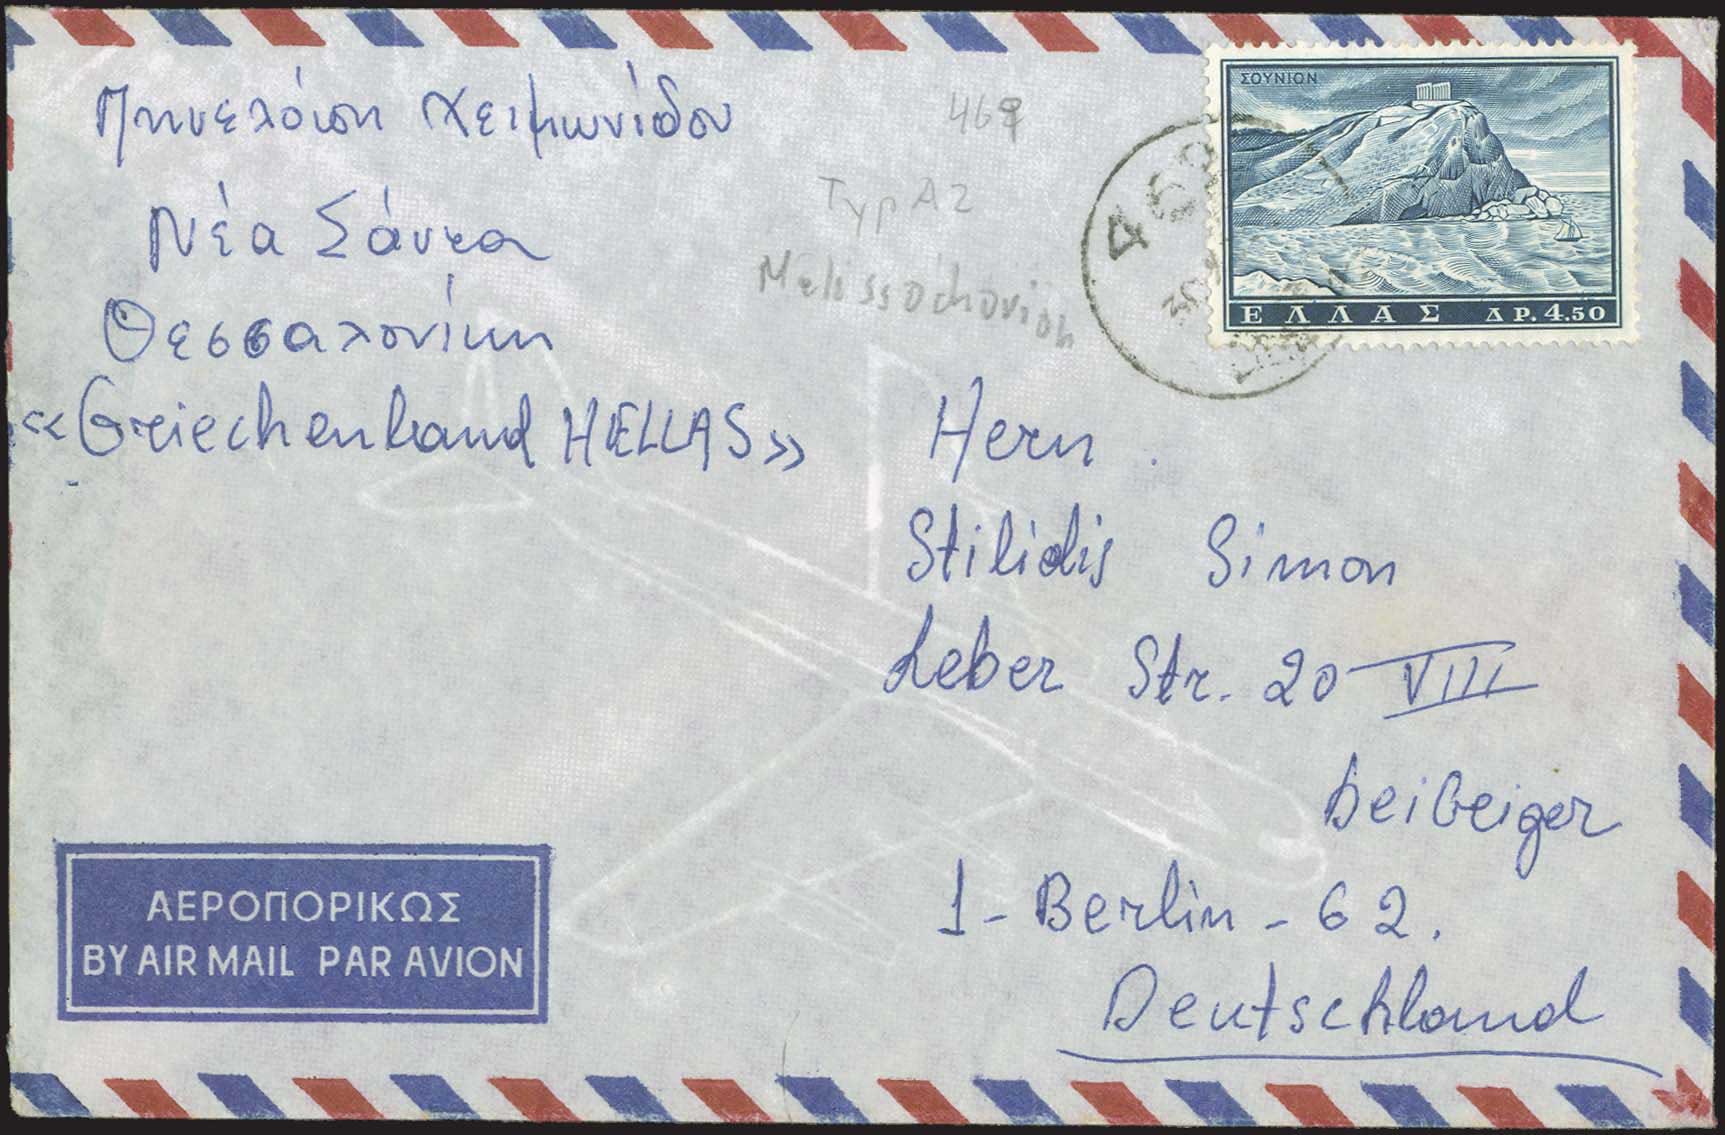 Πηνελόπη Χειμωνίδου
Νέα Σάντα
Θεσσαλονίκη
«Griechenland HELLAS»
469
Typ A2
Melissochorion
ΣΟΥΝΙΟΝ
ΕΛΛΑΣ ΔΡ. 4.50
Herrn
Stilidis Simon
Leber Str. 20 VIII
1 - Berlin - 62.
Deutschland
ΑΕΡΟΠΟΡΙΚΩΣ
BY AIR MAIL PAR AVION